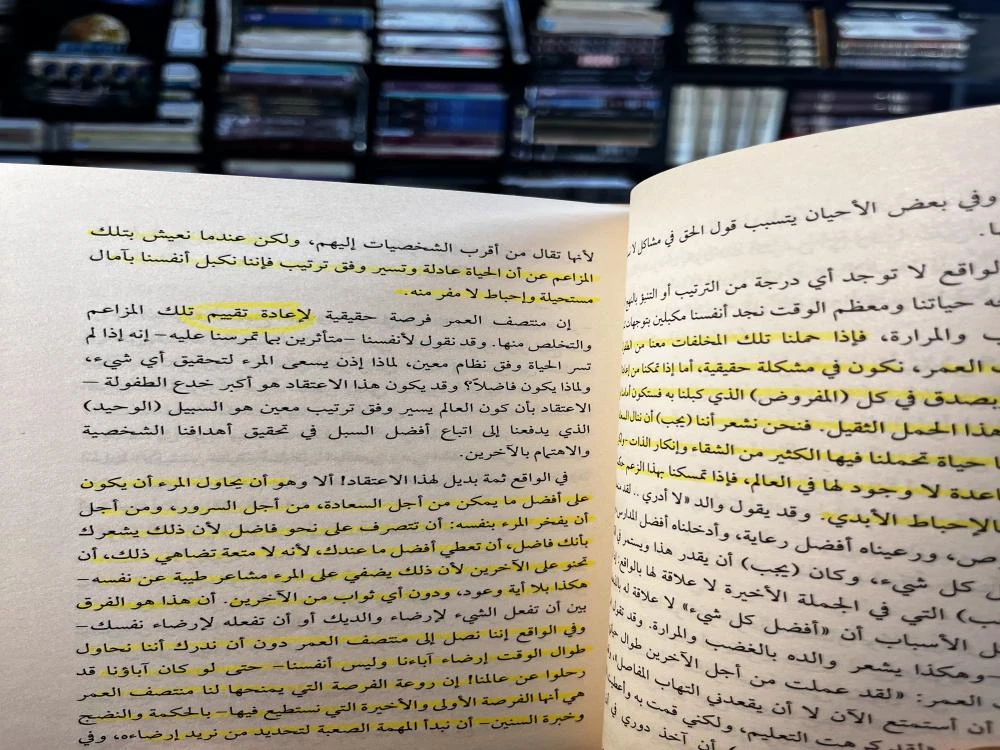 وفي بعض الأحيان يتسبب قول الحق في مشاكل لا
لواقع لا توجد أي درجة من الترتيب أو التنبؤ
ه حياتنا ومعظم الوقت نجد أنفسنا مكبلين بتوجهات
ب والمرارة، فإذا حملنا تلك المخلفات معنا من
ـ العمر، نكون في مشكلة حقيقية، أما إذا تمكنا من
بصدق في كل (المفروض) الذي كبلنا به فستكون
هذا الحمل الثقيل. فنحن نشعر أننا (يجب) أن ننال
ا حياة تحملنا فيها الكثير من الشقاء وإنكار الذات
اعدة لا وجود لها في العالم، فإذا تمسكنا بهذا الزعم
الإحباط الأبدي. وقد يقول والد «لا أدري .. لقد
ص، ورعيناه أفضل رعاية، وأدخلناه أفضل المدارس
كل شيء، وكان (يجب) أن يقدر هذا ويستمر في
ـب) التي في الجملة الأخيرة لا علاقة لها بالواقع
ل الأسباب أن «أفضل كل شيء» لا علاقة له
ـ وهكذا يشعر والده بالغضب والمرارة. وقد تقول
ـ العمر: «لقد عملت من أجل الآخرين طوال
أن أستمتع الآن لا أن يقعدني التهاب المفاصل
كرهت التعليم، ولكني قمت به
أن آخذ دوري في
لأنها تقال من أقرب الشخصيات إليهم، ولكن عندما نعيش بتلك
المزاعم عن أن الحياة عادلة وتسير وفق ترتيب فإننا نكبل أنفسنا بآمال
مستحيلة وإحباط لا مفر منه.
إن منتصف العمر فرصة حقيقية لإعادة تقييم تلك المزاعم
والتخلص منها. وقد نقول لأنفسنا –متأثرين بما تمرسنا عليه– إنه إذا لم
تسر الحياة وفق نظام معين، لماذا إذن يسعى المرء لتحقيق أي شيء،
ولماذا يكون فاضلاً؟ وقد يكون هذا الاعتقاد هو أكبر خدع الطفولة –
الاعتقاد بأن كون العالم يسير وفق ترتيب معين هو السبيل (الوحيد)
الذي يدفعنا إلى اتباع أفضل السبل في تحقيق أهدافنا الشخصية
والاهتمام بالآخرين.
في الواقع ثمة بديل لهذا الاعتقاد! ألا وهو أن يحاول المرء أن يكون
على أفضل ما يمكن من أجل السعادة، من أجل السرور، ومن أجل
أن يفخر المرء بنفسه: أن تتصرف على نحو فاضل لأن ذلك يشعرك
بأنك فاضل، أن تعطي أفضل ما عندك، لأنه لا متعة تضاهي ذلك، أن
تحنو على الآخرين لأن ذلك يضفي على المرء مشاعر طيبة عن نفسه–
هكذا بلا أية وعود، ودون أي ثواب من الآخرين. أن هذا هو الفرق
بين أن تفعل الشيء لإرضاء والديك أو أن تفعله لإرضاء نفسك–
وفي الواقع إننا نصل إلى منتصف العمر دون أن ندرك أننا نحاول
طوال الوقت إرضاء آباءنا وليس أنفسنا– حتى لو كان آباؤنا قد
رحلوا عن عالمنا! إن روعة الفرصة التي يمنحها لنا منتصف العمر
هي أنها الفرصة الأولى والأخيرة التي نستطيع فيها– بالحكمة والنضج
وخبرة السنين– أن نبدأ المهمة الصعبة لتحديد من نريد إرضاءه، وفي